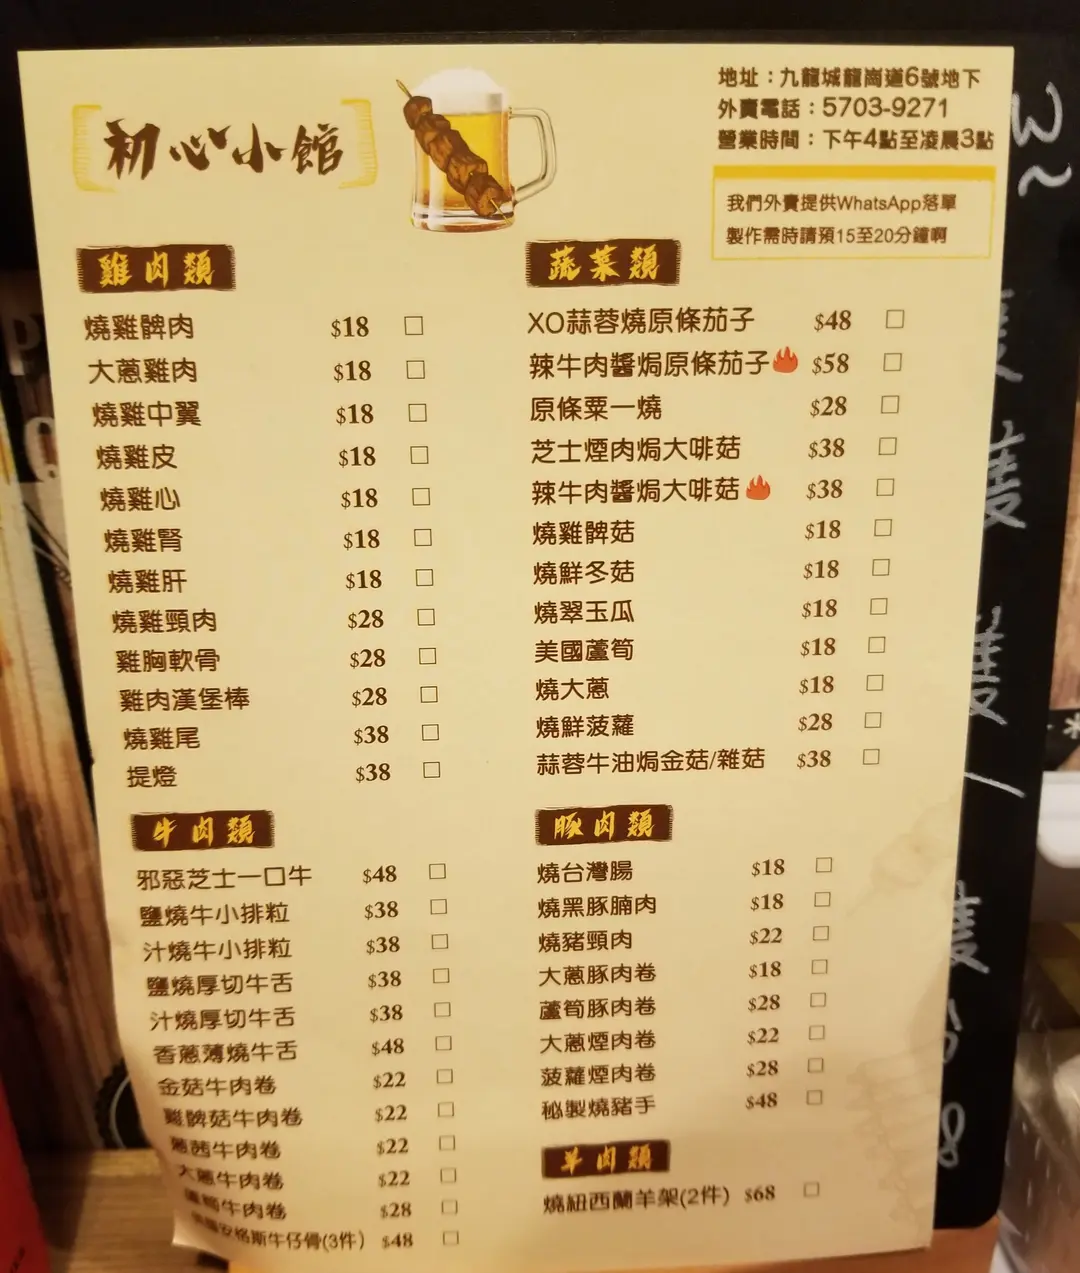 初心小館
地址：九龍城龍崗道6號地下
外賣電話：5703-9271
營業時間：下午4點至凌晨3點
我們外賣提供WhatsApp落單
製作需時請預15至20分鐘啊
雞肉類
燒雞髀肉 $18 □
大蔥雞肉 $18 □
燒雞中翼 $18 □
燒雞皮 $18 □
燒雞心 $18 □
燒雞腎 $18 □
燒雞肝 $18 □
燒雞頸肉 $28 □
雞胸軟骨 $28 □
雞肉漢堡棒 $28 □
燒雞尾 $38 □
提燈 $38 □
蔬菜類
XO蒜蓉燒原條茄子 $48 □
辣牛肉醬焗原條茄子 $58 □
原條粟一燒 $28 □
芝士煙肉焗大啡菇 $38 □
辣牛肉醬焗大啡菇 $38 □
燒雞髀菇 $18 □
燒鮮冬菇 $18 □
燒翠玉瓜 $18 □
美國蘆筍 $18 □
燒大蔥 $18 □
燒鮮菠蘿 $28 □
蒜蓉牛油焗金菇/雜菇 $38 □
牛肉類
邪惡芝士一口牛 $48 □
鹽燒牛小排粒 $38 □
汁燒牛小排粒 $38 □
鹽燒厚切牛舌 $38 □
汁燒厚切牛舌 $38 □
香蔥薄燒牛舌 $48 □
金菇牛肉卷 $22 □
雞髀菇牛肉卷 $22 □
牛肉卷 $22 □
大蔥牛肉卷 $22 □
牛肉卷 $28 □
安格斯牛仔骨(3件) $48 □
豚肉類
燒台灣腸 $18 □
燒黑豚腩肉 $18 □
燒豬頸肉 $22 □
大蔥豚肉卷 $18 □
蘆筍豚肉卷 $28 □
大蔥煙肉卷 $22 □
菠蘿煙肉卷 $28 □
秘製燒豬手 $48 □
羊肉類
燒紐西蘭羊架(2件) $68 □